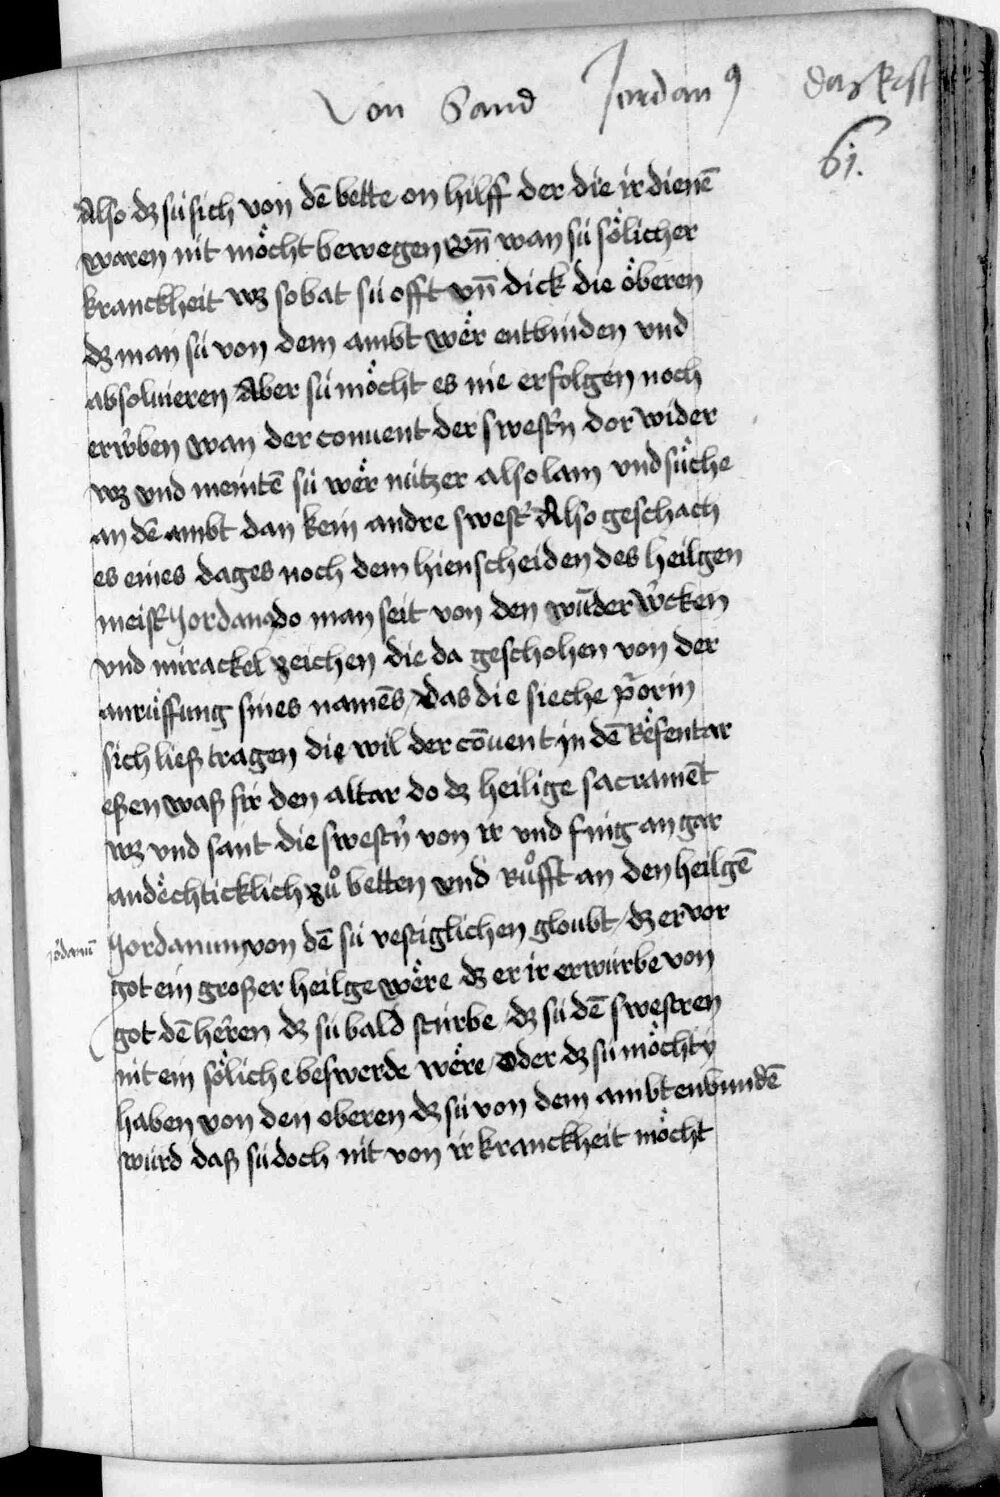 Von Sand Jordanꝯ
61.
Also dz sú sich von dē bette on hilff der die ir dienē
waren nit mo̊cht bewegen vn̄ wan sú so̊licher
kranckheit wz so bat sú offt vn̄ dick die o̊beren
dz man sú von dem ambt we̊r entbinden vnd
absoluieren Aber sú mo̊cht es nie erfolgen noch
erw̾ben wan der conuent der swest̾n dor wider
wz vnd meintē sú we̊r nútzer also lam vnd su̇che
an dē ambt dan kein andre swest̾ Also geschach
es eines dages noch dem hienscheiden des heilgen
meist̾ Jordanꝯ do man seit von den wūder w̾cken
vnd mirackel zeichen die da geschohen von der
anru̇ffung sines namēs / das die sieche p̾orin
sich ließ tragen die wil der cōuent in dē Refentar
eßen waß fir den altar do dz heilige sacramēt
wz vnd sant die swest̾n von ir vnd fing an gar
ande̊chticklich zů betten vnd růfft an den heilgē
Jordanum von dē sú vestiglichen gloubt / dz er vor
got ein großer heilge we̊re dz er ir erwúrbe von
got dē he̊ren dz sú bald stúrbe / dz sú dē swestren
nit ein so̊liche beswerde we̊re / oder dz sú mo̊cht
haben von den oberen dz sú von dem ambt enbundē
wúrd daß sú doch nit von ir kranckheit mo̊cht